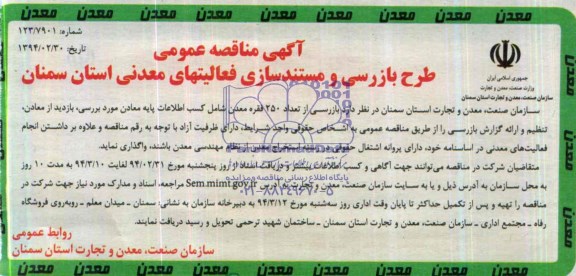 معدن معدن معدن معدن معدن
شماره: ۱۲۳/۷۹۰۱
تاریخ: ۱۳۹۴/۰۲/۳۰
جمهوری اسلامی ایران
وزارت صنعت، معدن و تجارت
سازمان صنعت، معدن و تجارت استان سمنان
آگهی مناقصه عمومی
طرح بازرسی و مستندسازی فعالیتهای معدنی استان سمنان
سازمان صنعت، معدن و تجارت استان سمنان در نظر دارد بازرسی از تعداد ۲۵۰ فقره معدن شامل کسب اطلاعات پایه معادن مورد بررسی، بازدید از معادن،
تنظیم و ارائه گزارش بازرسی را از طریق مناقصه عمومی به اشخاص حقوقی واجد شرایط، دارای ظرفیت آزاد با توجه به رقم مناقصه و علاوه بر داشتن انجام
فعالیت‌های معدنی در اساسنامه خود، دارای پروانه اشتغال حقوقی در استخراج معدن از نظام مهندسی معدن باشند، واگذاری نماید.
متقاضیان شرکت در مناقصه می‌توانند جهت آگاهی و کسب اطلاعات بیشتر و دریافت اسناد از روز پنجشنبه مورخ ۹۴/۰۲/۳۱ لغایت ۹۴/۳/۱۰ به مدت ۱۰ روز
به محل سازمان به آدرس ذیل و یا به سایت سازمان صنعت، معدن و تجارت به آدرس Sem.mimt.gov.ir مراجعه، اسناد و مدارک مورد نیاز جهت شرکت در
مناقصه را تهیه و پس از تکمیل حداکثر تا پایان وقت اداری روز سه‌شنبه مورخ ۹۴/۳/۱۲ به دبیرخانه سازمان به نشانی: سمنان ـ میدان معلم ـ روبه‌روی فروشگاه
رفاه ـ مجتمع اداری ـ سازمان صنعت، معدن و تجارت استان سمنان ـ ساختمان شهید ترحمی تحویل و رسید دریافت نمایند.
روابط عمومی
سازمان صنعت، معدن و تجارت استان سمنان
پایگاه اطلاع رسانی مناقصه و مزایده
۰۲۱-۸۸۳۴۹۶۷۰-۵
معدن معدن معدن معدن معدن